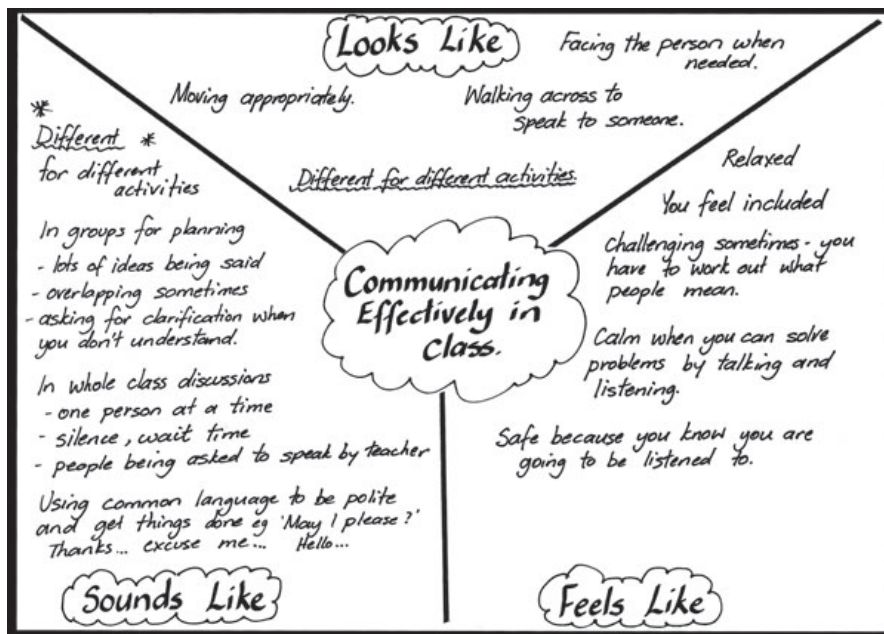 Looks Like
Facing the person when
needed.
Moving appropriately.
Walking across to
speak to someone.
Different for different activities.
Communicating
Effectively in
Class.
*
Different *
for different
activities
In groups for planning
- lots of ideas being said
- overlapping sometimes
- asking for clarification when
you don't understand.
In whole class discussions
- one person at a time
- silence, wait time
- people being asked to speak by teacher
Using common language to be polite
and get things done eg 'May I please?'
Thanks... excuse me... Hello...
Sounds Like
Relaxed
You feel included
Challenging sometimes - you
have to work out what
people mean.
Calm when you can solve
problems by talking and
listening.
Safe because you know you are
going to be listened to.
Feels Like